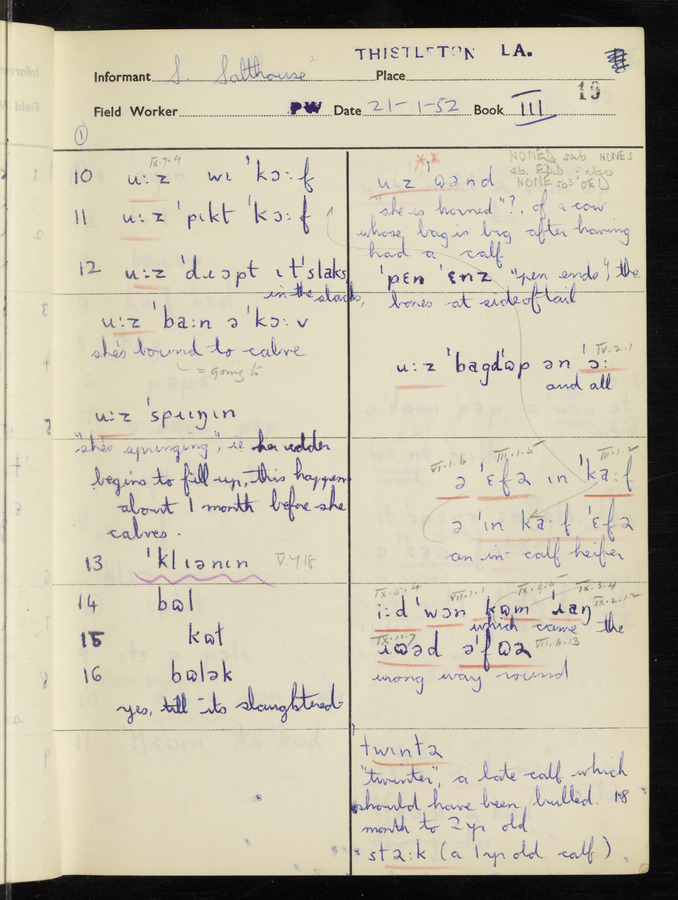 THISTLETON LA.
Informant S. Salthouse Place
19
Field Worker PW Date 21-1-52 Book III
1
IX.7.9
10 u:z wɪ 'kɔ:f
11 u:z 'pɪkt 'kɔ:f
12 u:z 'dɹɔpt ɪt'slaks
in the slacks,
u:z 'ba:n ə 'kɔ:v
she's bound to calve
= going to
u:z 'spɹɪŋɪn
"she's springing", ie her udder
begins to fill up, this happens
about 1 month before she
calves.
13 'klɪənɪn V.4.18
14 bɷl
15 kɷt
16 bɷlək
yes, till its slaughtered
HONED swb HONES
sb. EDD; also
HONE sb³ OED
u:z 'ɷənd
"she is horned"?, of a cow
whose bag is big after having
had a calf
'pɛn 'ɛnz "pen ends", the
bones at side of tail
IV.2.1
u:z 'bagdɷp ən 'ɔ:
and all
VI.1.6 III.1.5 III.1.2
ə 'ɛfə ɪn 'ka:f
ə 'ɪn ka:f 'ɛfə
an in-calf heifer
IX.5.4 VII.1.1 IX.9.5 IX.3.4
i:d 'wɔn kɷm 'ɹaŋ IX.2.1
which came the
ə'fɷə VII.8.13
wrong way round
twɪntə
"twinter", a late calf which
should have been bulled. 18
month to 2 yr old
stə:k (a 1 yr old calf)